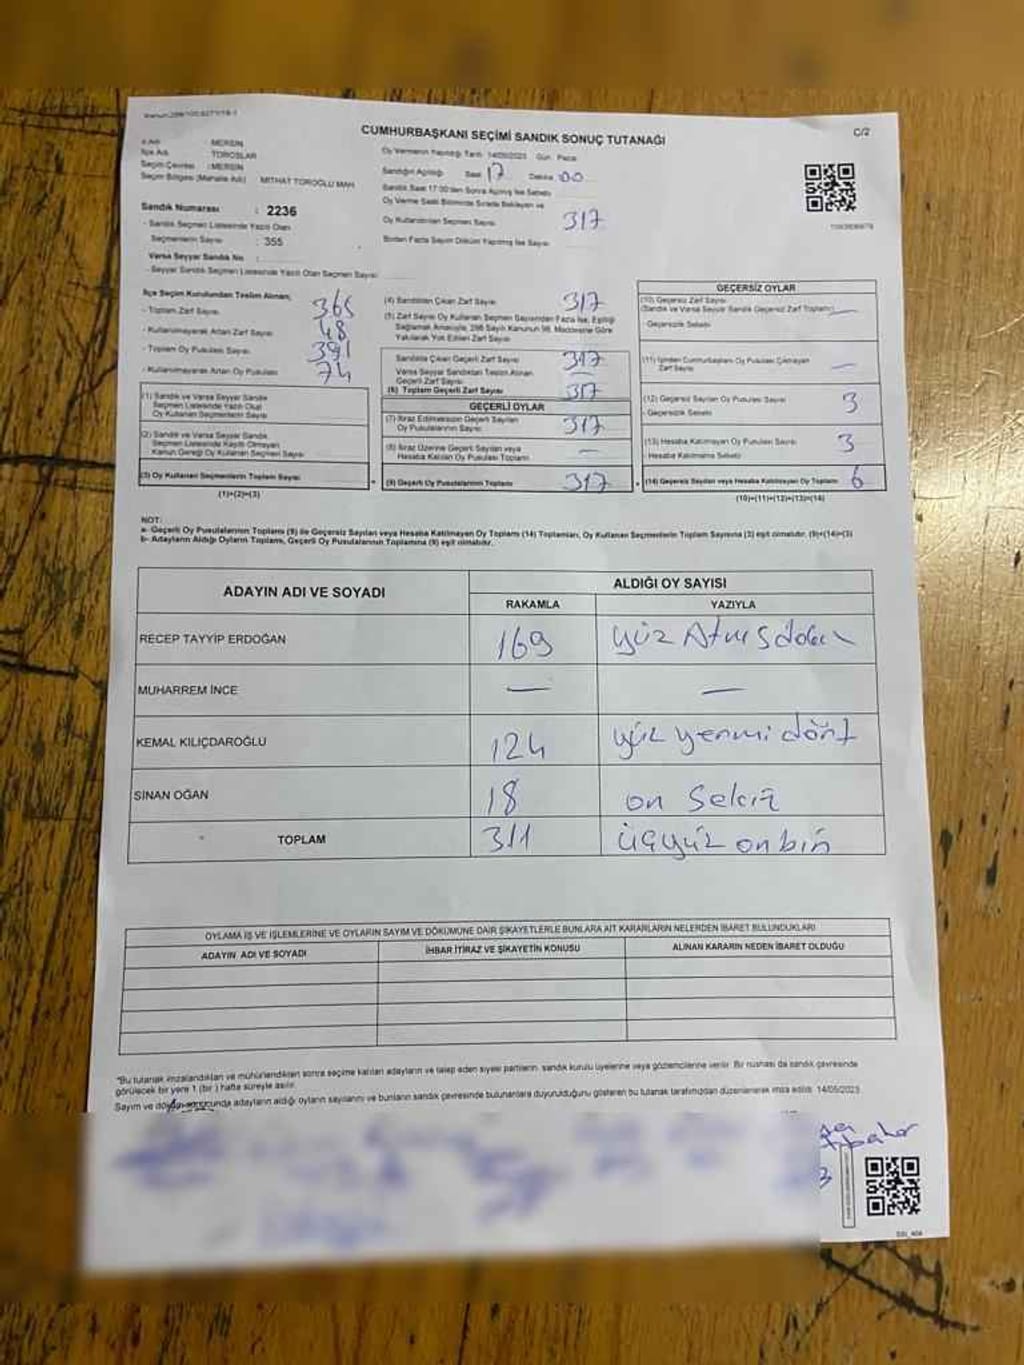 CUMHURBAŞKANI SEÇİMİ SANDIK SONUÇ TUTANAĞI
C/2
İl Adı : MERSİN
İlçe Adı : TOROSLAR
Seçim Çevresi : MERSİN
Seçim Bölgesi (Mahalle Adı) : MİTHAT TOROĞLU MAH
Sandık Numarası : 2236
- Sandık Seçmen Listesinde Yazılı Olan
Seçmenlerin Sayısı : 355
Varsa Seyyar Sandık No :
- Seyyar Sandık Seçmen Listesinde Yazılı Olan Seçmen Sayısı
Oy Vermenin Yapıldığı Tarih 14/05/2023 Gün Pazar
Sandığın Açılışı Saat 17 Dakika 00
Sandık Saat 17:00'den Sonra Açılmış İse Sebebi
Oy Verme Saati Bitiminde Sırada Bekleyen ve
Oy Kullandırılan Seçmen Sayısı 317
Birden Fazla Sayım Döküm Yapılmış İse Sayısı
İlçe Seçim Kurulundan Teslim Alınan;
- Toplam Zarf Sayısı 365
- Kullanılmayarak Artan Zarf Sayısı 48
- Toplam Oy Pusulası Sayısı 391
- Kullanılmayarak Artan Oy Pusulası 74
(1) Sandık ve Varsa Seyyar Sandık
Seçmen Listesinde Yazılı Olup
Oy Kullanan Seçmenlerin Sayısı
(2) Sandık ve Varsa Seyyar Sandık
Seçmen Listesinde Kayıtlı Olmayan
Kanun Gereği Oy Kullanan Seçmen Sayısı
(3) Oy Kullanan Seçmenlerin Toplam Sayısı
(1)+(2)=(3)
(4) Sandıktan Çıkan Zarf Sayısı 317
(5) Zarf Sayısı Oy Kullanan Seçmen Sayısından Fazla İse, Eşitliği
Sağlamak Amacıyla, 298 Sayılı Kanunun 98. Maddesine Göre
Yakılarak Yok Edilen Zarf Sayısı
Sandıkta Çıkan Geçerli Zarf Sayısı 317
Varsa Seyyar Sandıktan Teslim Alınan
Geçerli Zarf Sayısı —
(6) Toplam Geçerli Zarf Sayısı 317
GEÇERLİ OYLAR
(7) İtiraz Edilmeksizin Geçerli Sayılan
Oy Pusulalarının Sayısı 317
(8) İtiraz Üzerine Geçerli Sayılan veya
Hesaba Katılan Oy Pusulası Toplamı —
(9) Geçerli Oy Pusulalarının Toplamı 317
GEÇERSİZ OYLAR
(10) Geçersiz Zarf Sayısı
(Sandık ve Varsa Seyyar Sandık Geçersiz Zarf Toplamı) —
- Geçersizlik Sebebi
(11) İçinden Cumhurbaşkanı Oy Pusulası Çıkmayan
Zarf Sayısı —
(12) Geçersiz Sayılan Oy Pusulası Sayısı 3
- Geçersizlik Sebebi
(13) Hesaba Katılmayan Oy Pusulası Sayısı 3
- Hesaba Katılmama Sebebi
(14) Geçersiz Sayılan veya Hesaba Katılmayan Oy Toplamı 6
(10)+(11)+(12)+(13)=(14)
NOT:
a- Geçerli Oy Pusulalarının Toplamı (9) ile Geçersiz Sayılan veya Hesaba Katılmayan Oy Toplamı (14) Toplamları, Oy Kullanan Seçmenlerin Toplam Sayısına (3) eşit olmalıdır. (9)+(14)=(3)
b- Adayların Aldığı Oyların Toplamı, Geçerli Oy Pusulalarının Toplamına (9) eşit olmalıdır.
ADAYIN ADI VE SOYADI ALDIĞI OY SAYISI
RAKAMLA YAZIYLA
RECEP TAYYİP ERDOĞAN 169 yüz Atmış
MUHARREM İNCE — —
KEMAL KILIÇDAROĞLU 124 yüz yermi dört
SİNAN OĞAN 18 on Sekiz
TOPLAM 311 üçyüz onbir
OYLAMA İŞ VE İŞLEMLERİNE VE OYLARIN SAYIM VE DÖKÜMÜNE DAİR ŞİKAYETLERLE BUNLARA AİT KARARLARIN NELERDEN İBARET BULUNDUKLARI
ADAYIN ADI VE SOYADI İHBAR İTİRAZ VE ŞİKAYETİN KONUSU ALINAN KARARIN NEDEN İBARET OLDUĞU
*Bu tutanak imzalandıktan ve mühürlendikten sonra seçime katılan adayların ve talep eden siyasi partilerin sandık kurulu üyelerine veya gözlemcilerine verilir. Bir nüshası da sandık çevresinde
görülecek bir yere 1 (bir) hafta süreyle asılır.
Sayım ve döküm sonucunda adayların aldığı oyların sayılarını ve bunların sandık çevresinde bulunanlara duyurulduğunu gösteren bu tutanak tarafımızdan düzenlenerek imza edildi. 14/05/2023